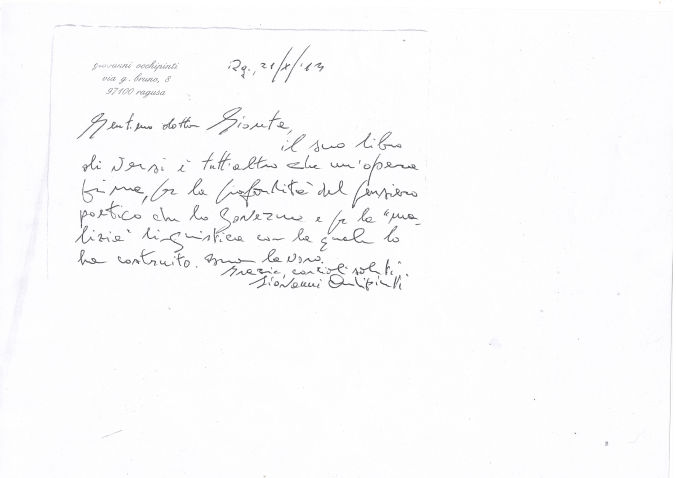 giovanni occhipinti
via g. bruno, 8
97100 ragusa
Rg., 21/X/'13
Gentimo dottor Gionta,
il suo libro
di versi è tutt'altro che un'opera
prima, per la profondità del pensiero
poetico che lo governa e per la "ma-
lizia" linguistica con la quale lo
ha costruito. Buon lavoro.
Grazie, cordiali saluti,
Giovanni Occhipinti